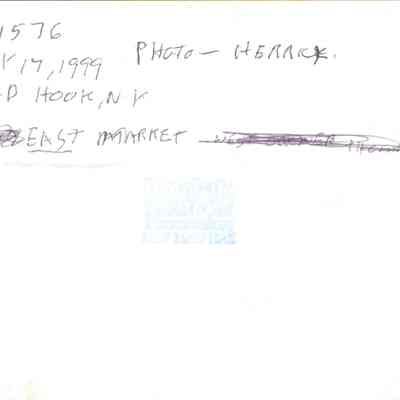 1576
Y 17, 1999 PHOTO - HERRICK.
D HOOK, NY
EAST MARKET